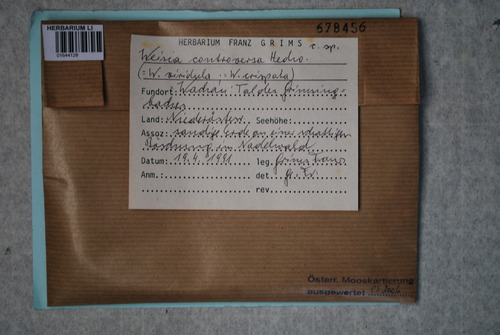 HERBARIUM LI
678456
HERBARIUM FRANZ GRIMS c. sp.
Weisia controversa Hedw.
(= W. viridula, = W. crispata)
Fundort: Wachau: Tal der
Land: Niederösterr. Seehöhe:
Assoz: sandige Erde an einer schattigen
im Nadelwald
Datum: 19.4.1981 leg. Grims Franz
Anm.: det. Gr. Fr.
rev.
Österr. Mooskartierung
ausgewertet